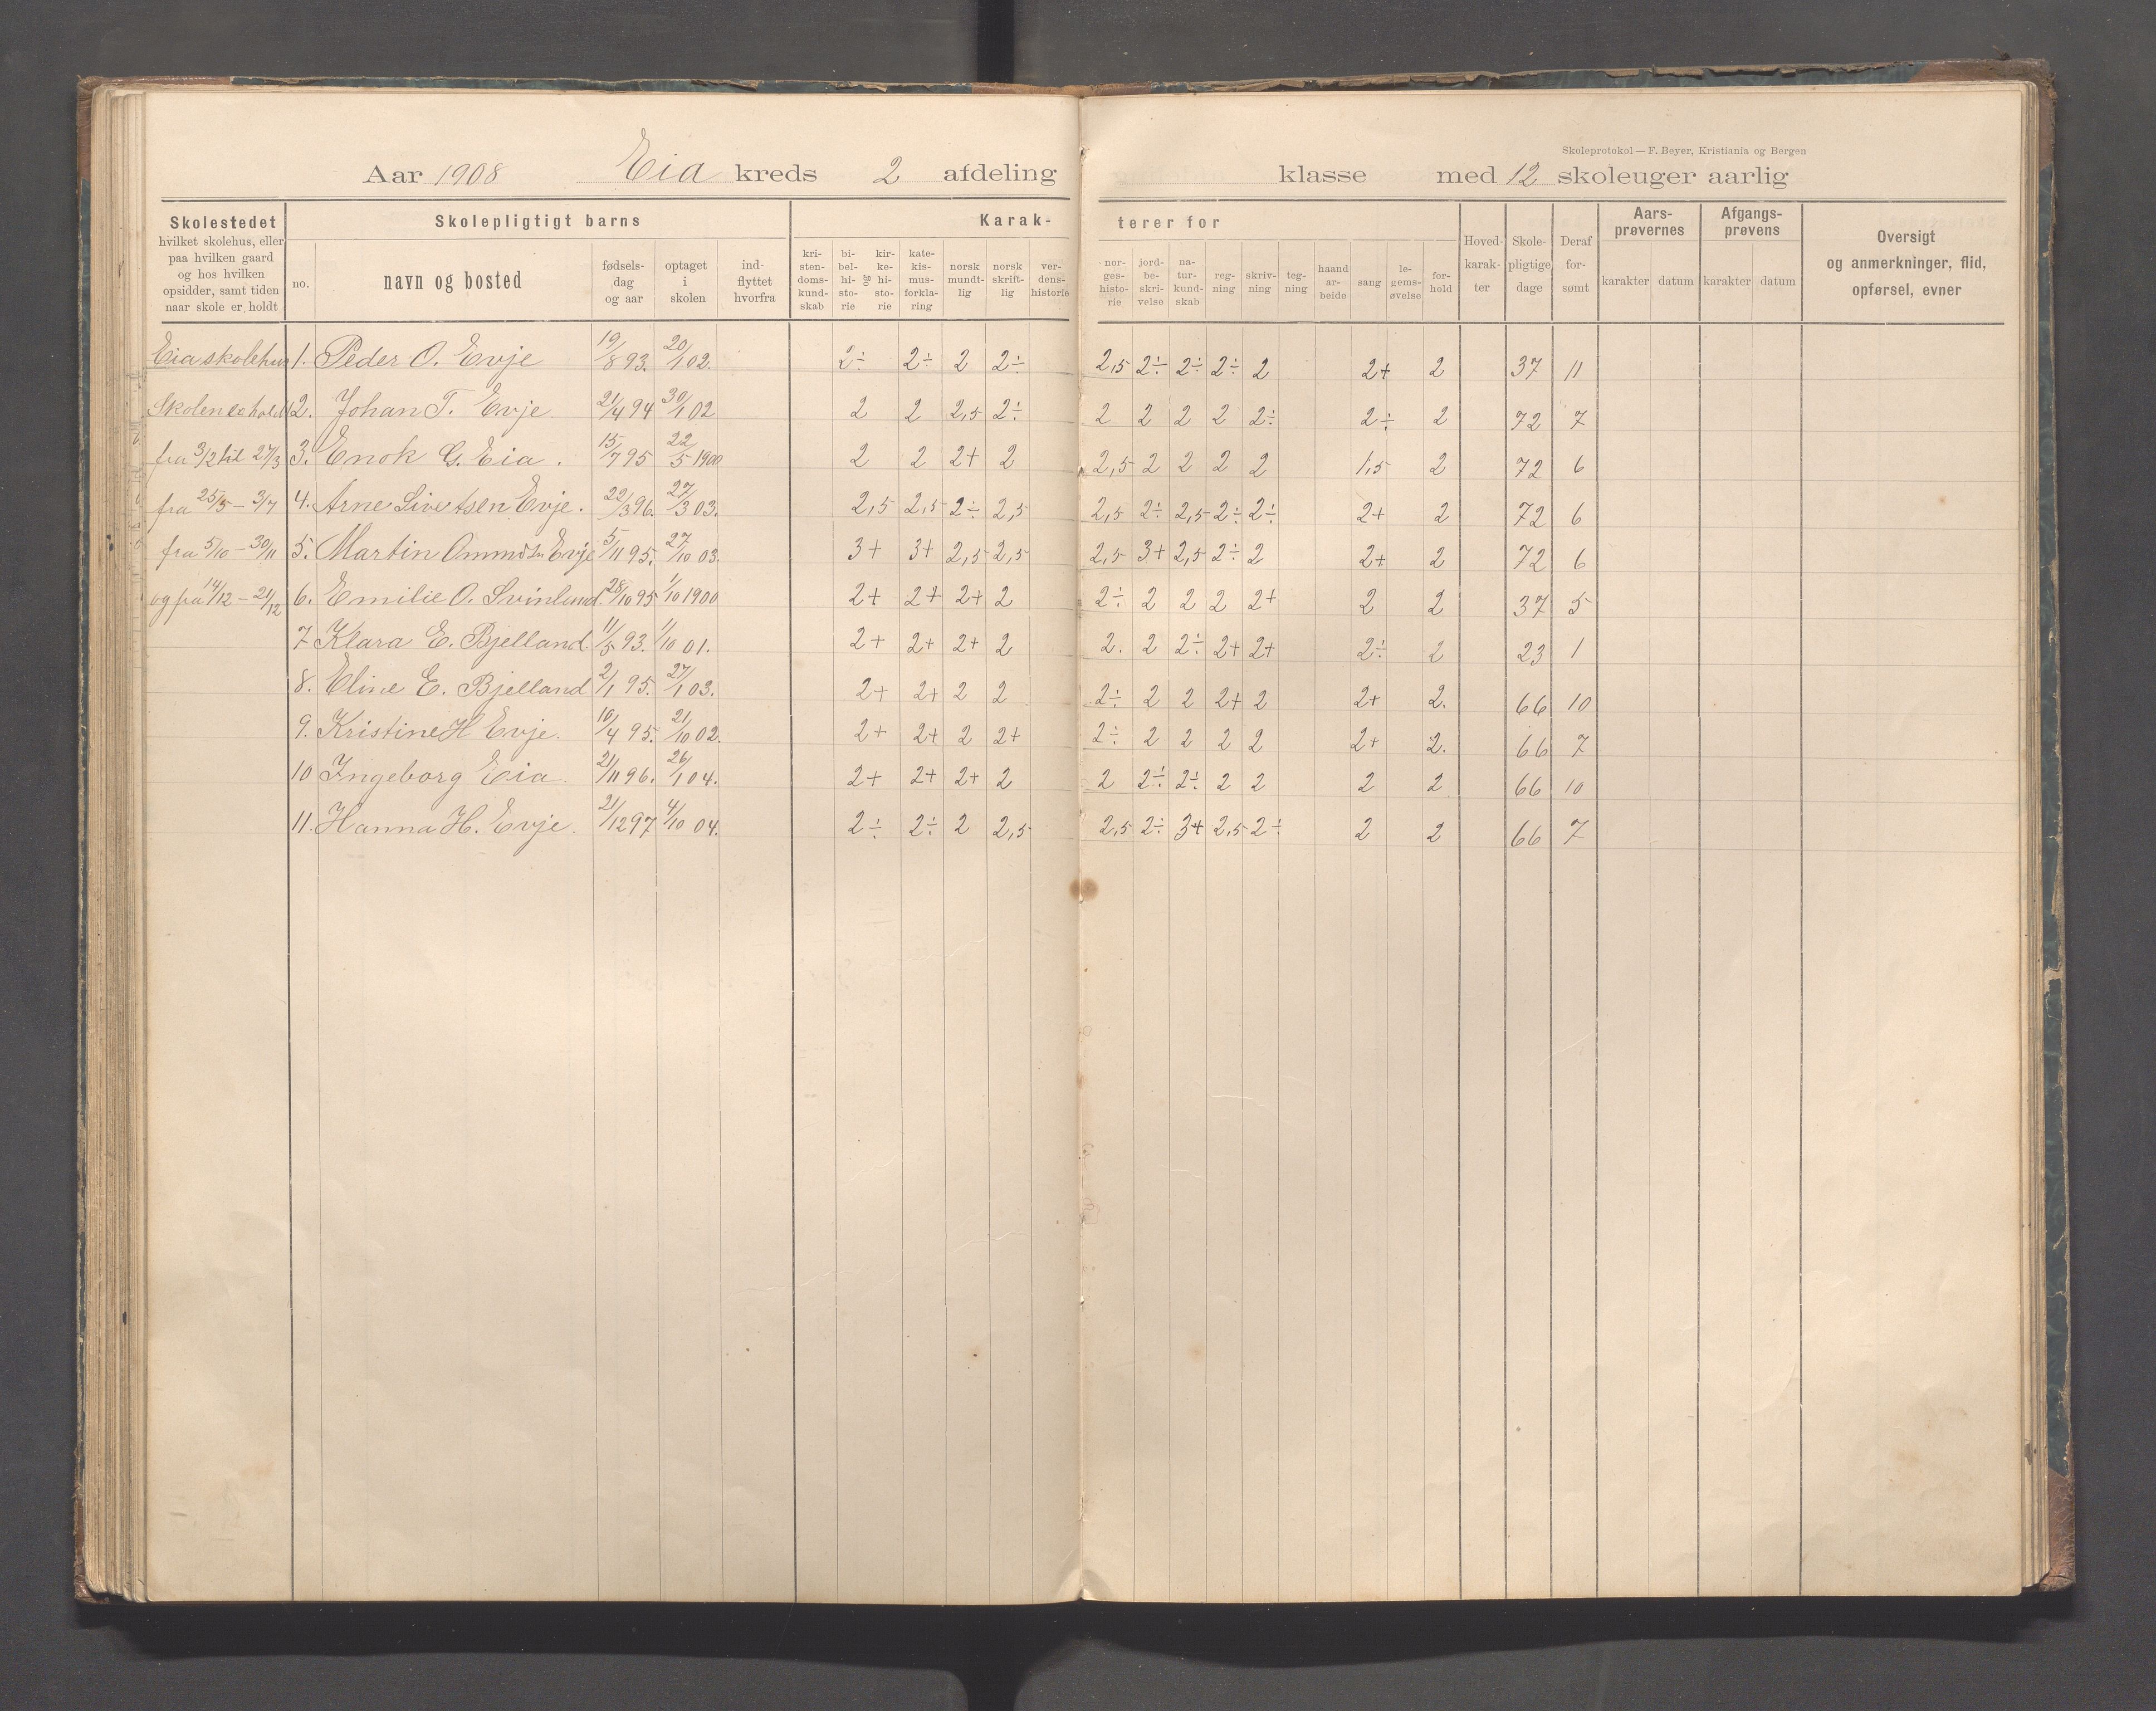 Skoleprotokol — F. Beyer, Kristiania og Bergen
Aar 1908 Eia kreds 2 afdeling klasse med 12 skoleuger aarlig
Skolestedet hvilket skolehus, eller paa hvilken gaard og hos hvilken opsidder, samt tiden naar skole er holdt
Skolepligtigt barns
no. navn og bosted fødsels-dag og aar optaget i skolen ind-flyttet hvorfra
Karak-terer for
kri-sten-doms-kund-skab bi-bel-hi-sto-rie og kir-ke-hi-sto-rie kate-kis-mus-forkla-ring norsk mundt-lig norsk skrift-lig ver-dens-historie nor-ges-histo-rie jord-be-skri-velse na-tur-kund-skab reg-ning skriv-ning teg-ning haand ar-beide sang le-gems-øvelse for-hold
Hoved-karak-ter Skole-pligtige dage Deraf for-sømt
Aars-prøvernes karakter datum
Afgangs-prøvens karakter datum
Oversigt og anmerkninger, flid, opførsel, evner
Eia skolehus 1. Peder O. Evje 19/8 93. 20/1 02. 2÷ 2÷ 2 2÷ 2,5 2÷ 2÷ 2÷ 2 2+ 2 37 11
Skolen er holdt 2. Johan T. Evje 21/4 94 30/1 02 2 2 2,5 2÷ 2 2 2 2 2÷ 2÷ 2 72 7
fra 3/2 til 27/3 3. Enok G. Eia. 15/7 95 22/5 1900 2 2 2+ 2 2,5 2 2 2 2 1,5 2 72 6
fra 25/5 – 3/7 4. Arne Sivertsen Evje. 22/3 96. 27/3 03. 2,5 2,5 2÷ 2,5 2,5 2÷ 2,5 2÷ 2÷ 2+ 2 72 6
fra 5/10 – 30/11 5. Martin Ommdsn Evje 5/11 95. 27/10 03. 3+ 3+ 2,5 2,5 2,5 3+ 2,5 2÷ 2 2+ 2 72 6
og fra 14/12 – 21/12 6. Emilie O. Svinlund. 28/10 95 1/10 1900 2+ 2+ 2+ 2 2÷ 2 2 2 2+ 2 2 37 5
7 Klara E. Bjelland. 11/5 93. 1/10 01. 2+ 2+ 2+ 2 2. 2 2÷ 2+ 2+ 2÷ 2 23 1
8. Eline E. Bjelland 2/1 95. 27/1 03. 2+ 2+ 2 2 2÷ 2 2 2+ 2 2+ 2. 66 10
9. Kristine H Evje. 10/4 95. 21/10 02. 2+ 2+ 2 2+ 2÷ 2 2 2 2 2+ 2. 66 7
10 Ingeborg Eia. 21/11 96. 26/1 04. 2+ 2+ 2+ 2 2 2÷ 2÷ 2 2 2 2 66 10
11. Hanna H. Evje. 21/12 97 4/10 04. 2÷ 2÷ 2 2,5 2,5 2÷ 3+ 2,5 2÷ 2 2 66 7